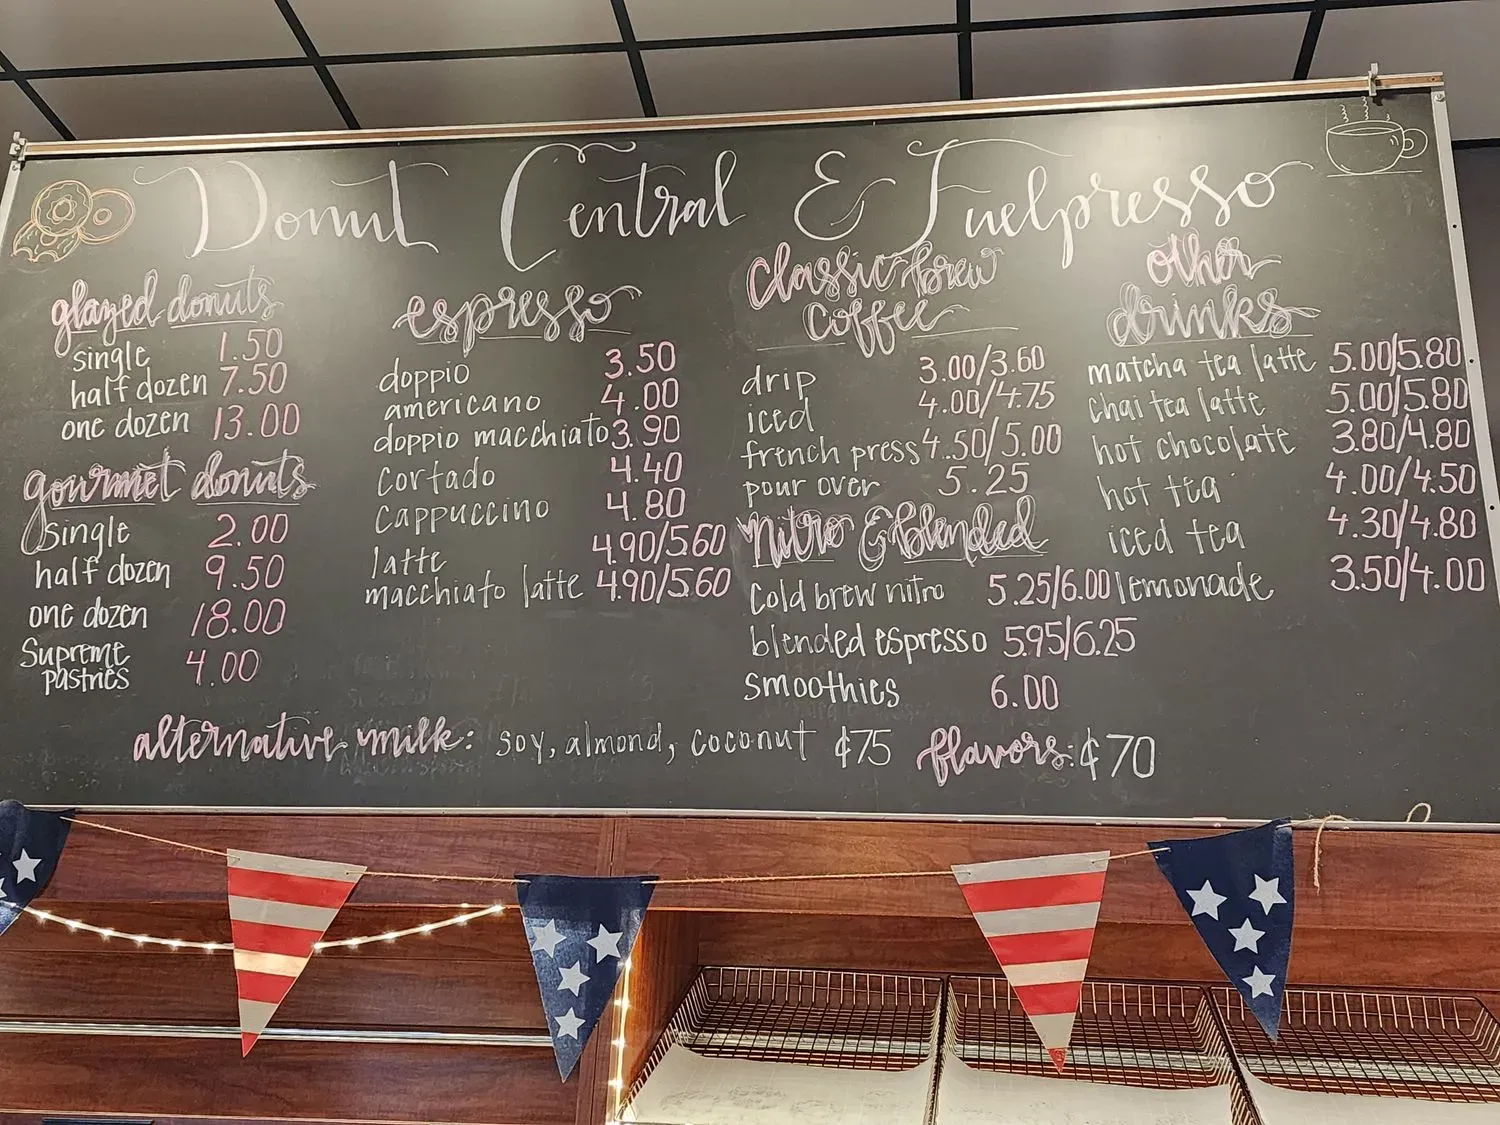 Donut Central & Fuelpresso
glazed donuts
single 1.50
half dozen 7.50
one dozen 13.00
gourmet donuts
single 2.00
half dozen 9.50
one dozen 18.00
Supreme
pastries 4.00
espresso
doppio 3.50
americano 4.00
doppio macchiato 3.90
cortado 4.40
cappuccino 4.80
latte 4.90/5.60
macchiato latte 4.90/5.60
classic brew
coffee
drip 3.00/3.60
iced 4.00/4.75
french press 4.50/5.00
pour over 5.25
Nitro & blended
cold brew nitro 5.25/6.00
blended espresso 5.95/6.25
smoothies 6.00
other
drinks
matcha tea latte 5.00/5.80
chai tea latte 5.00/5.80
hot chocolate 3.80/4.80
hot tea 4.00/4.50
iced tea 4.30/4.80
lemonade 3.50/4.00
alternative milk: soy, almond, coconut ¢75 flavors: ¢70